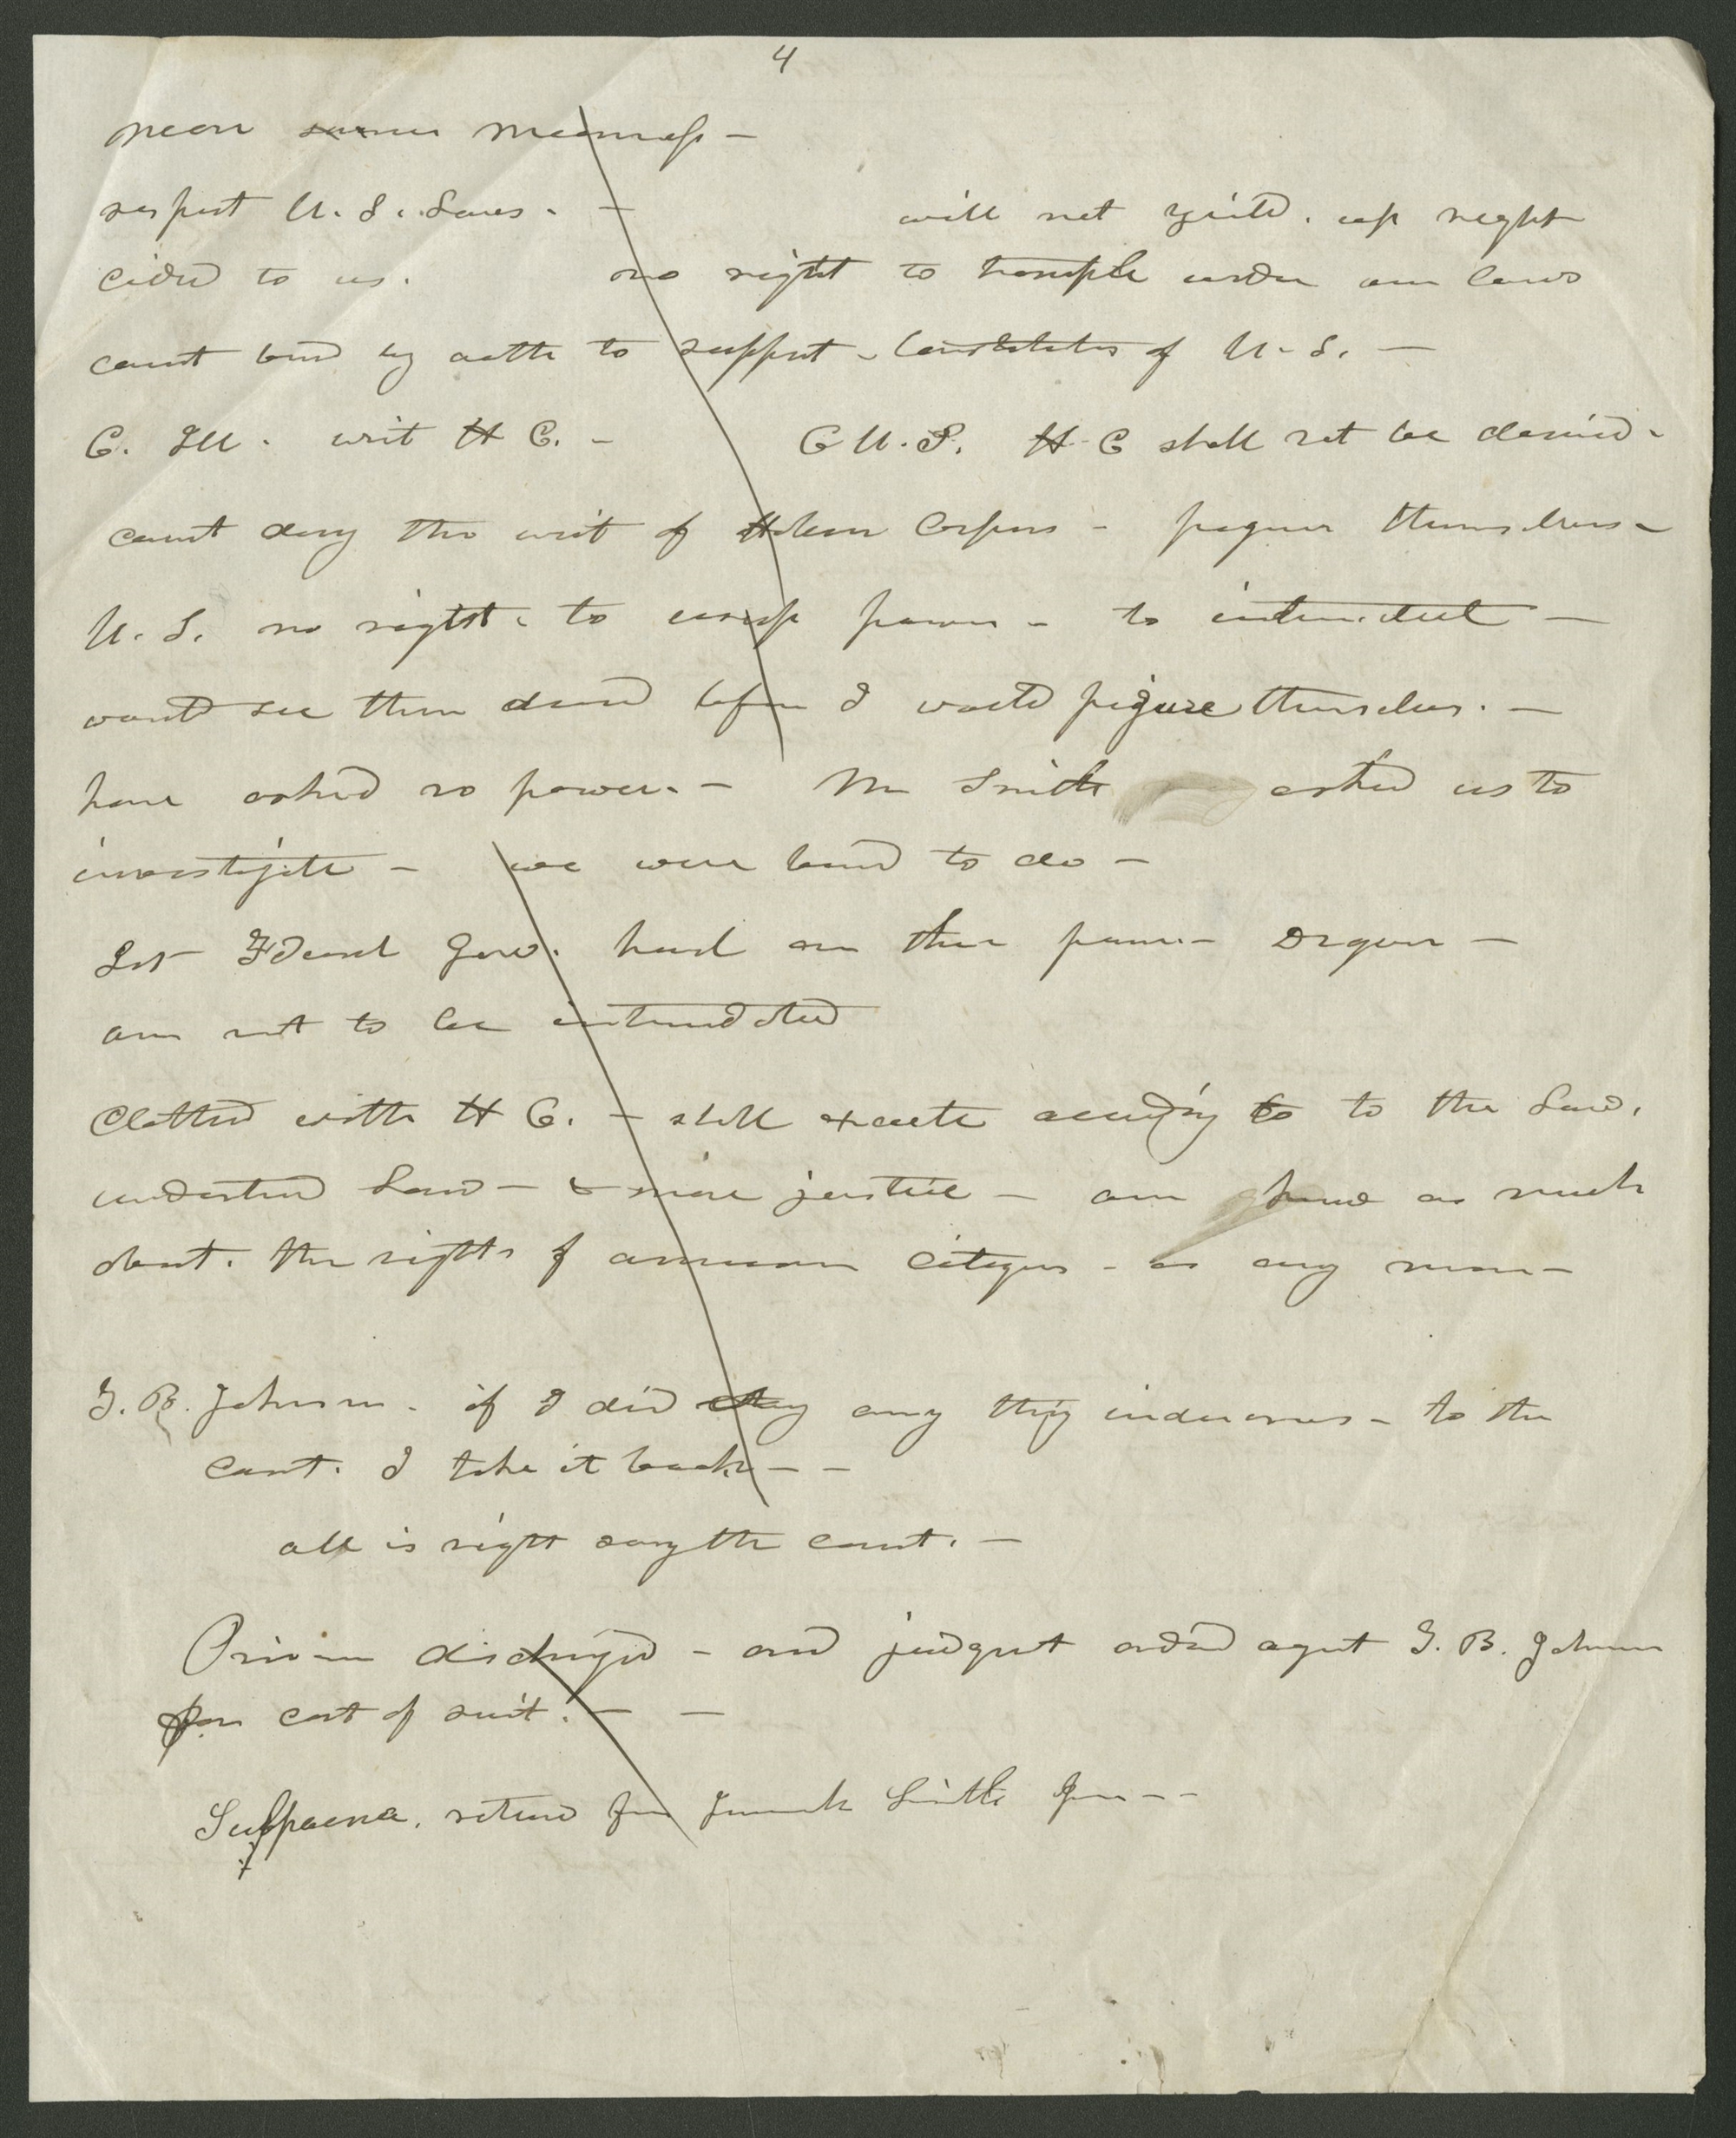 4
mean meanness -
respect U. S. Laws. - will not yield. up right
cided to us. no right to trample under our laws
court bound by oath to support Constitution of U. S. -
C. Ill. writ H C. - C U. S. H C shall not be denied -
court deny the writ of Habeas Corpus - purgure themselves -
U. S. no right. to usurp power - to intimidate -
would see them dead before I would pirgure themselves. -
have asked no power. - Mr Smith asked us to
investigate - we were bound to do -
Let Federal Gov. hand on their power -
am not to be intimidated
Clothed with H C. - shall execute according to to the Law.
understand Law - & more justice - am have as much
about. the rights of american citizens - as any man -
T. B. Johnson. if I did any thing indecorous - to the
court. I take it back - -
all is right says the court. -
Prisoner discharged - and judgment ordered against T. B. Johnson
for cost of suit. - -
Subpoena. return for Smith Jun - -